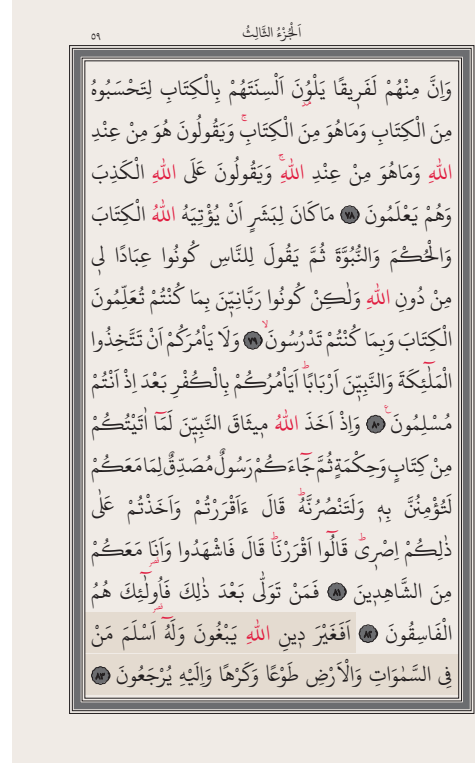 اَلْجُزْءُ الثَّالِثُ
٥٩
وَاِنَّ مِنْهُمْ لَفَر۪يقًا يَلْوُ۫نَ اَلْسِنَتَهُمْ بِالْكِتَابِ لِتَحْسَبُوهُ
مِنَ الْكِتَابِ وَمَاهُوَ مِنَ الْكِتَابِۚ وَيَقُولُونَ هُوَ مِنْ عِنْدِ
اللّٰهِ وَمَاهُوَ مِنْ عِنْدِ اللّٰهِۚ وَيَقُولُونَ عَلَى اللّٰهِ الْكَذِبَ
وَهُمْ يَعْلَمُونَ ﴿٧٨﴾ مَاكَانَ لِبَشَرٍ اَنْ يُؤْتِيَهُ اللّٰهُ الْكِتَابَ
وَالْحُكْمَ وَالنُّبُوَّةَ ثُمَّ يَقُولَ لِلنَّاسِ كُونُوا عِبَادًا ل۪ي
مِنْ دُونِ اللّٰهِ وَلٰكِنْ كُونُوا رَبَّانِيّ۪نَ بِمَا كُنْتُمْ تُعَلِّمُونَ
الْكِتَابَ وَبِمَا كُنْتُمْ تَدْرُسُونَۙ ﴿٧٩﴾ وَلَا يَاْمُرَكُمْ اَنْ تَتَّخِذُوا
الْمَلٰٓئِكَةَ وَالنَّبِيّ۪نَ اَرْبَابًاۜ اَيَاْمُرُكُمْ بِالْكُفْرِ بَعْدَ اِذْ اَنْتُمْ
مُسْلِمُونَ۟ ﴿٨٠﴾ وَاِذْ اَخَذَ اللّٰهُ م۪يثَاقَ النَّبِيّ۪نَ لَمَٓا اٰتَيْتُكُمْ
مِنْ كِتَابٍ وَحِكْمَةٍ ثُمَّ جَٓاءَكُمْ رَسُولٌ مُصَدِّقٌ لِمَا مَعَكُمْ
لَتُؤْمِنُنَّ بِه۪ وَلَتَنْصُرُنَّهُۜ قَالَ ءَاَقْرَرْتُمْ وَاَخَذْتُمْ عَلٰى
ذٰلِكُمْ اِصْر۪يۜ قَالُٓوا اَقْرَرْنَاۜ قَالَ فَاشْهَدُوا وَاَنَا۬ مَعَكُمْ
مِنَ الشَّاهِد۪ينَ ﴿٨١﴾ فَمَنْ تَوَلّٰى بَعْدَ ذٰلِكَ فَاُو۬لٰٓئِكَ هُمُ
الْفَاسِقُونَ ﴿٨٢﴾ اَفَغَيْرَ د۪ينِ اللّٰهِ يَبْغُونَ وَلَهُٓ اَسْلَمَ مَنْ
فِي السَّمٰوَاتِ وَالْاَرْضِ طَوْعًا وَكَرْهًا وَاِلَيْهِ يُرْجَعُونَ ﴿٨٣﴾